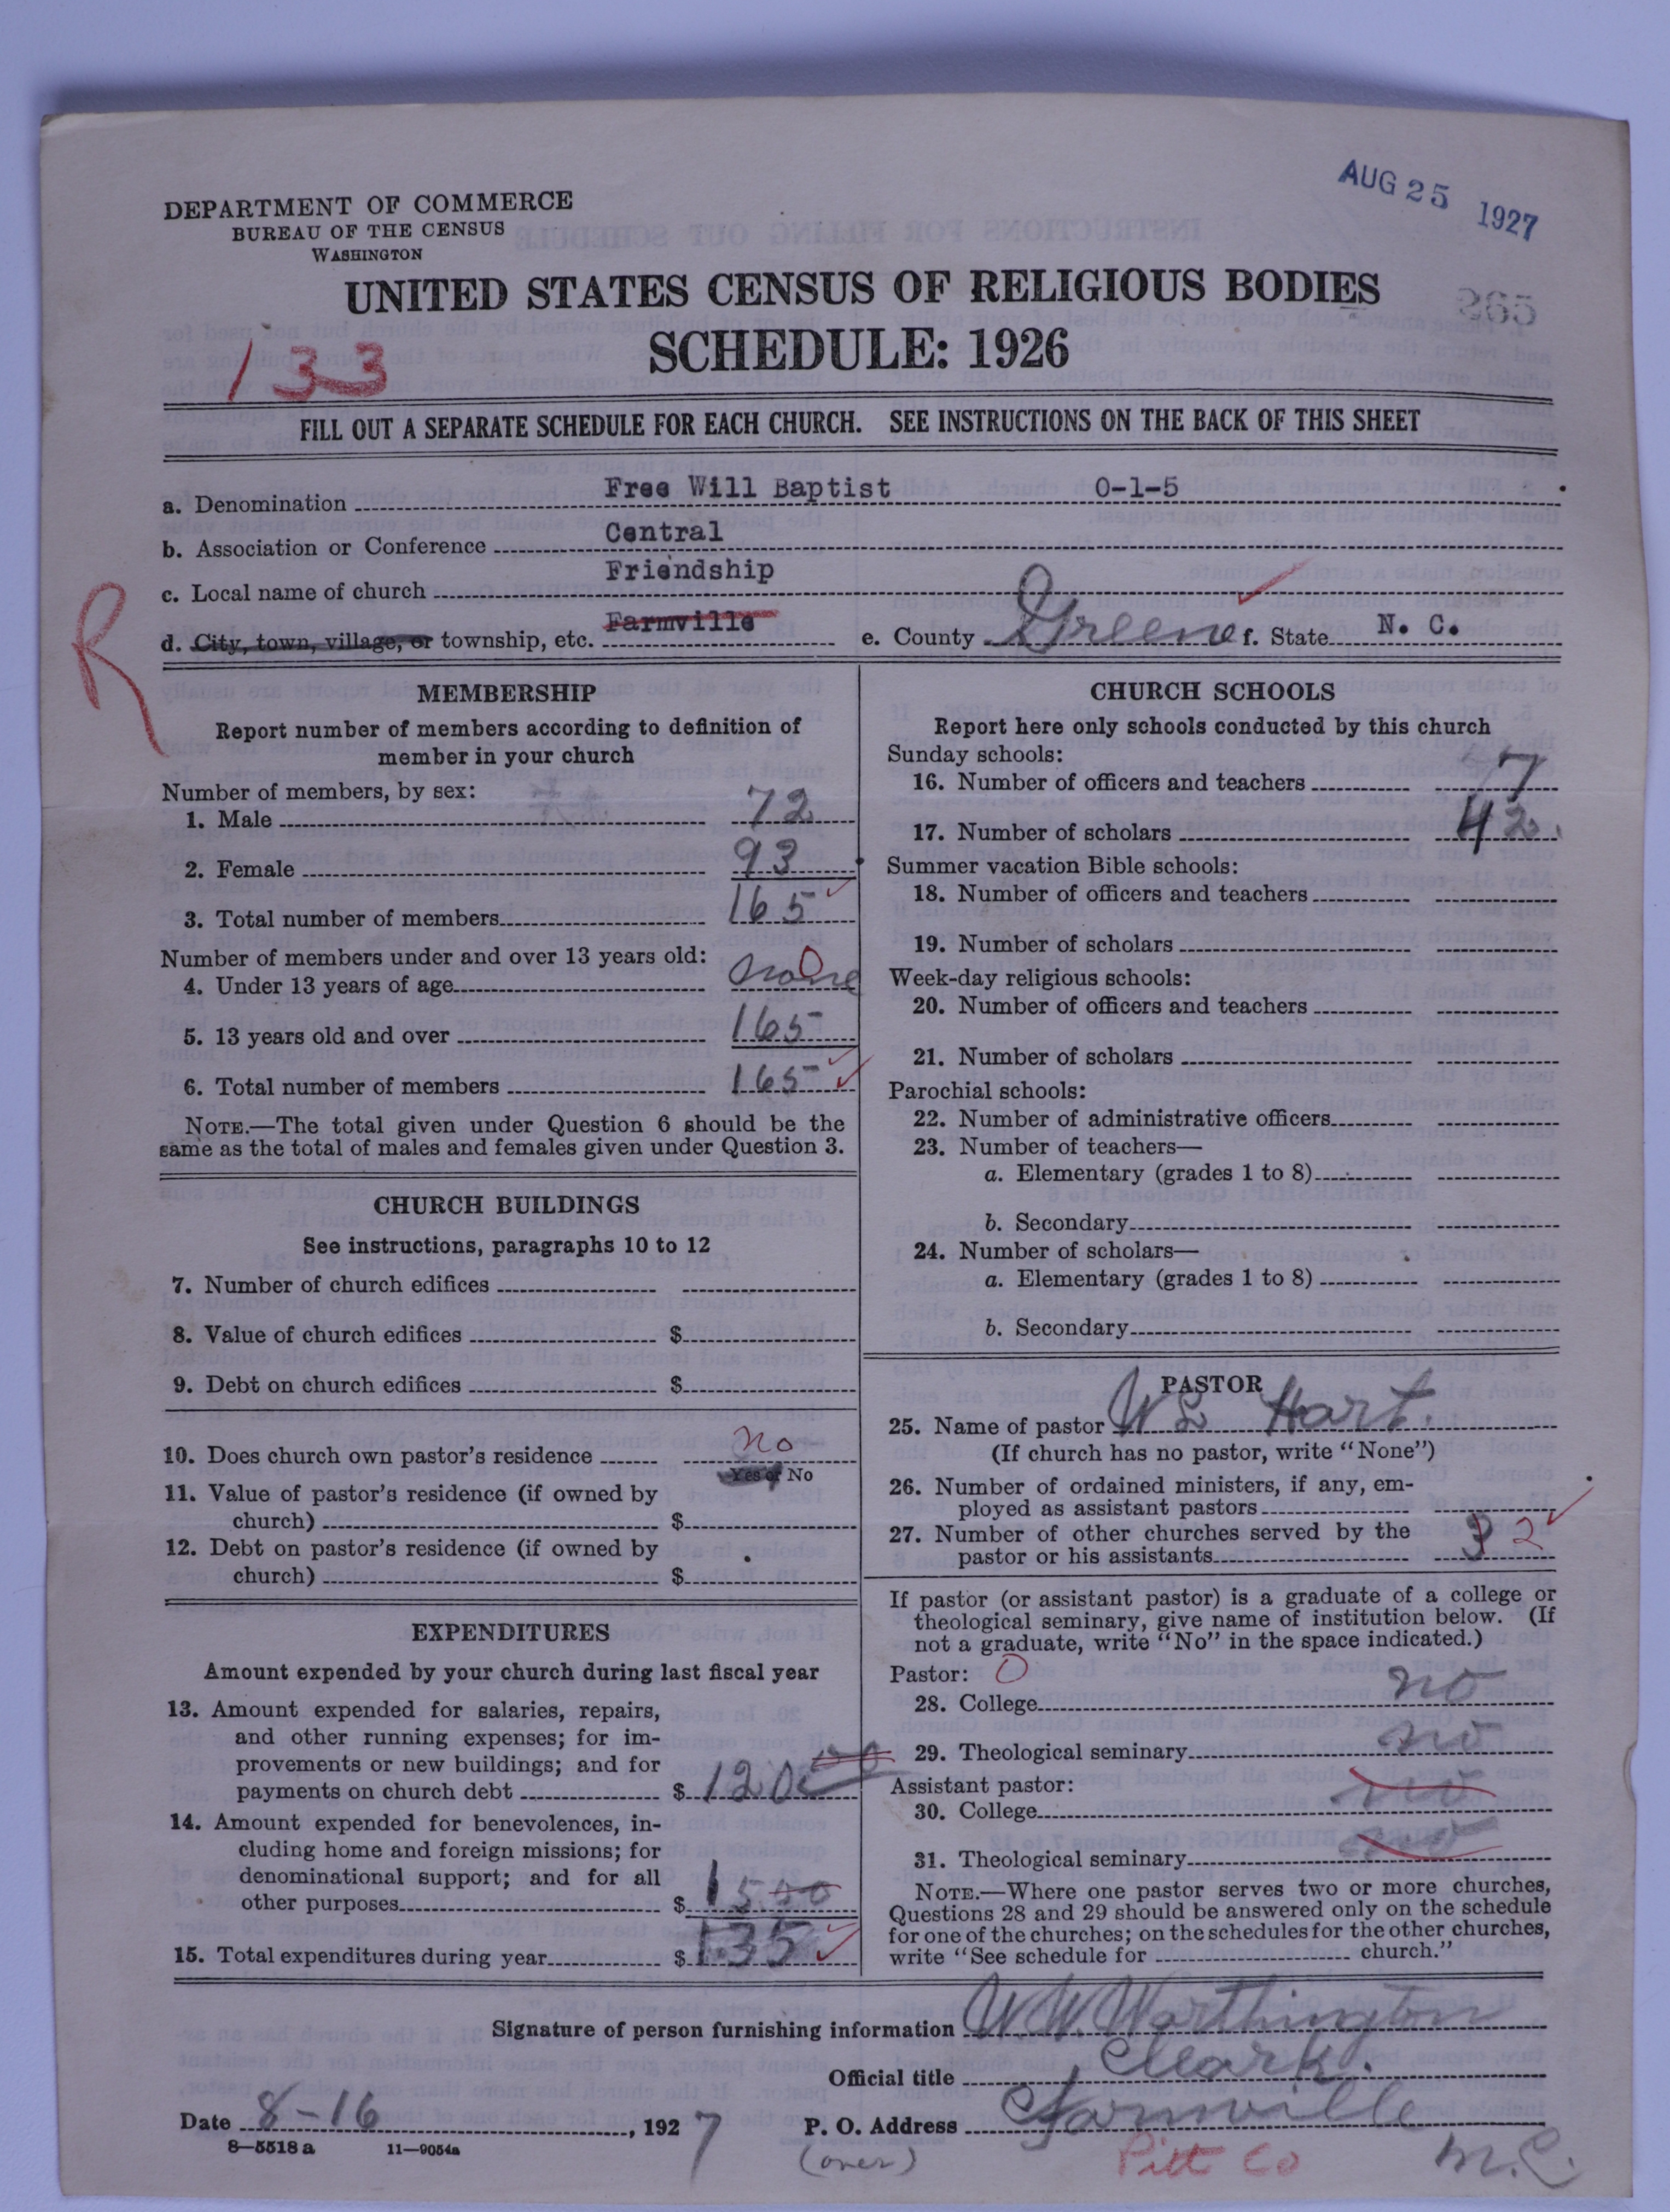 AUG 25 1927
DEPARTMENT OF COMMERCE
BUREAU OF THE CENSUS
WASHINGTON
UNITED STATES CENSUS OF RELIGIOUS BODIES
SCHEDULE: 1926
133
FILL OUT A SEPARATE SCHEDULE FOR EACH CHURCH. SEE INSTRUCTIONS ON THE BACK OF THIS SHEET
a. Denomination Free Will Baptist 0-1-5
b. Association or Conference Central
c. Local name of church Friendship
d. City, town, village, or township, etc. Farmville e. County Greene f. State N. C.
R
MEMBERSHIP
Report number of members according to definition of
member in your church
Number of members, by sex:
1. Male 72
2. Female 93
3. Total number of members 165
Number of members under and over 13 years old:
4. Under 13 years of age none 0
5. 13 years old and over 165
6. Total number of members 165
NOTE.—The total given under Question 6 should be the
same as the total of males and females given under Question 3.
CHURCH BUILDINGS
See instructions, paragraphs 10 to 12
7. Number of church edifices
8. Value of church edifices $
9. Debt on church edifices $
10. Does church own pastor's residence no
Yes or No
11. Value of pastor's residence (if owned by
church) $
12. Debt on pastor's residence (if owned by
church) $
EXPENDITURES
Amount expended by your church during last fiscal year
13. Amount expended for salaries, repairs,
and other running expenses; for im-
provements or new buildings; and for
payments on church debt $ 120 00
14. Amount expended for benevolences, in-
cluding home and foreign missions; for
denominational support; and for all
other purposes $ 15 00
15. Total expenditures during year $ 135
CHURCH SCHOOLS
Report here only schools conducted by this church
Sunday schools:
16. Number of officers and teachers 7
17. Number of scholars 42
Summer vacation Bible schools:
18. Number of officers and teachers
19. Number of scholars
Week-day religious schools:
20. Number of officers and teachers
21. Number of scholars
Parochial schools:
22. Number of administrative officers
23. Number of teachers—
a. Elementary (grades 1 to 8)
b. Secondary
24. Number of scholars—
a. Elementary (grades 1 to 8)
b. Secondary
PASTOR
25. Name of pastor W L Hart.
(If church has no pastor, write "None")
26. Number of ordained ministers, if any, em-
ployed as assistant pastors
27. Number of other churches served by the
pastor or his assistants 3 2
If pastor (or assistant pastor) is a graduate of a college or
theological seminary, give name of institution below. (If
not a graduate, write "No" in the space indicated.)
Pastor: 0
28. College no
29. Theological seminary no
Assistant pastor:
30. College no
31. Theological seminary no
NOTE.—Where one pastor serves two or more churches,
Questions 28 and 29 should be answered only on the schedule
for one of the churches; on the schedules for the other churches,
write "See schedule for church."
Signature of person furnishing information W. W. Worthington
Official title Cleark.
Date 8-16, 1927 P. O. Address Farmville
8—5518 a 11—9054a (over) Pitt Co N.C.